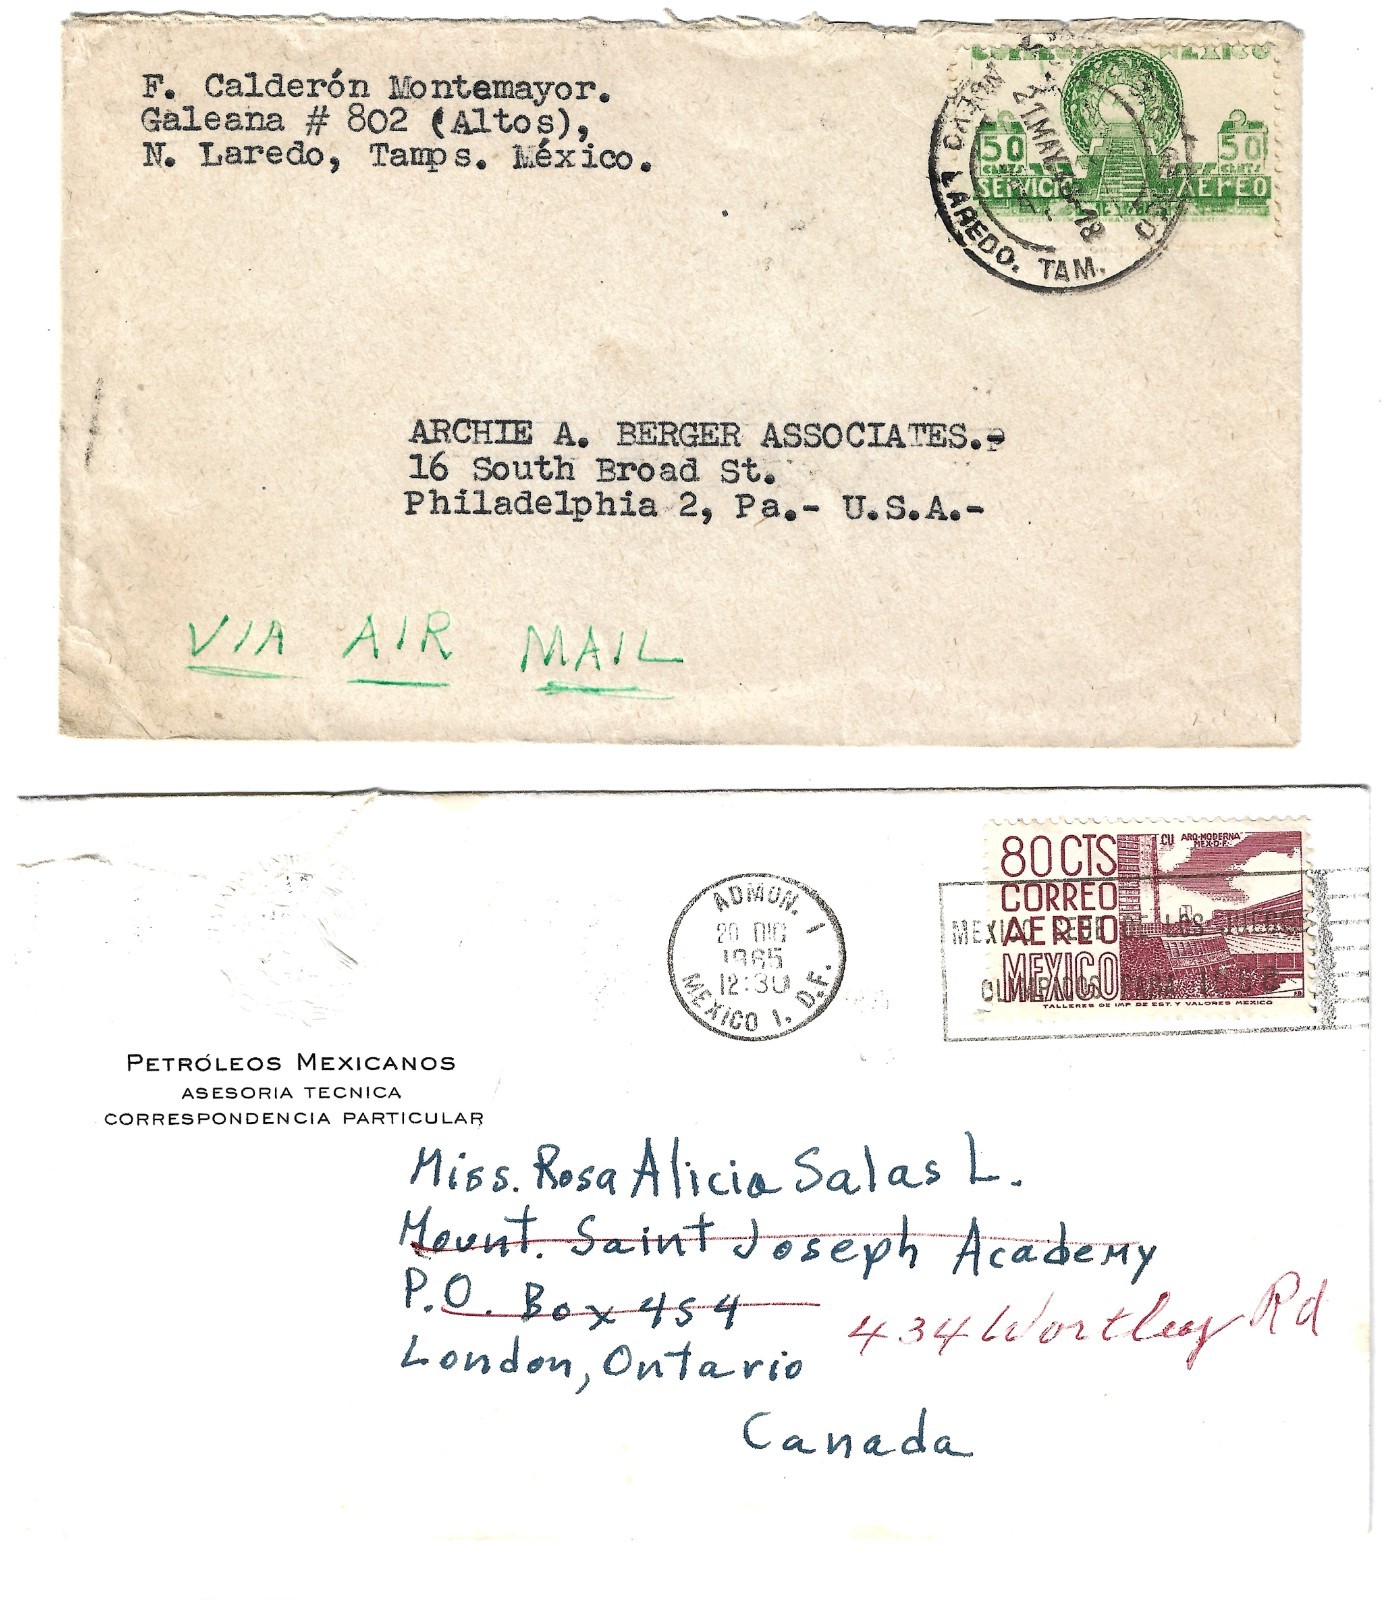 F. Calderón Montemayor.
Galeana # 802 (Altos),
N. Laredo, Tamps. México.
50 50
CENTS CENTS
SERVICIO AEREO
LAREDO. TAM.
21.MAY.
ARCHIE A. BERGER ASSOCIATES.-
16 South Broad St.
Philadelphia 2, Pa.- U.S.A.-
VIA AIR MAIL
80 CTS
CORREO
AEREO
MEXICO
CU ARQ-MODERNA
MEX-D.F.
TALLERES DE IMP DE EST. Y VALORES MEXICO
MEXICO SEDE DE LOS JUEGOS
ADMON. 1
20 DIC
1965
12:30
MEXICO 1, D.F.
PETRÓLEOS MEXICANOS
ASESORIA TECNICA
CORRESPONDENCIA PARTICULAR
Miss. Rosa Alicia Salas L.
Mount. Saint Joseph Academy
P.O. Box 454
434 Wortley Rd
London, Ontario
Canada